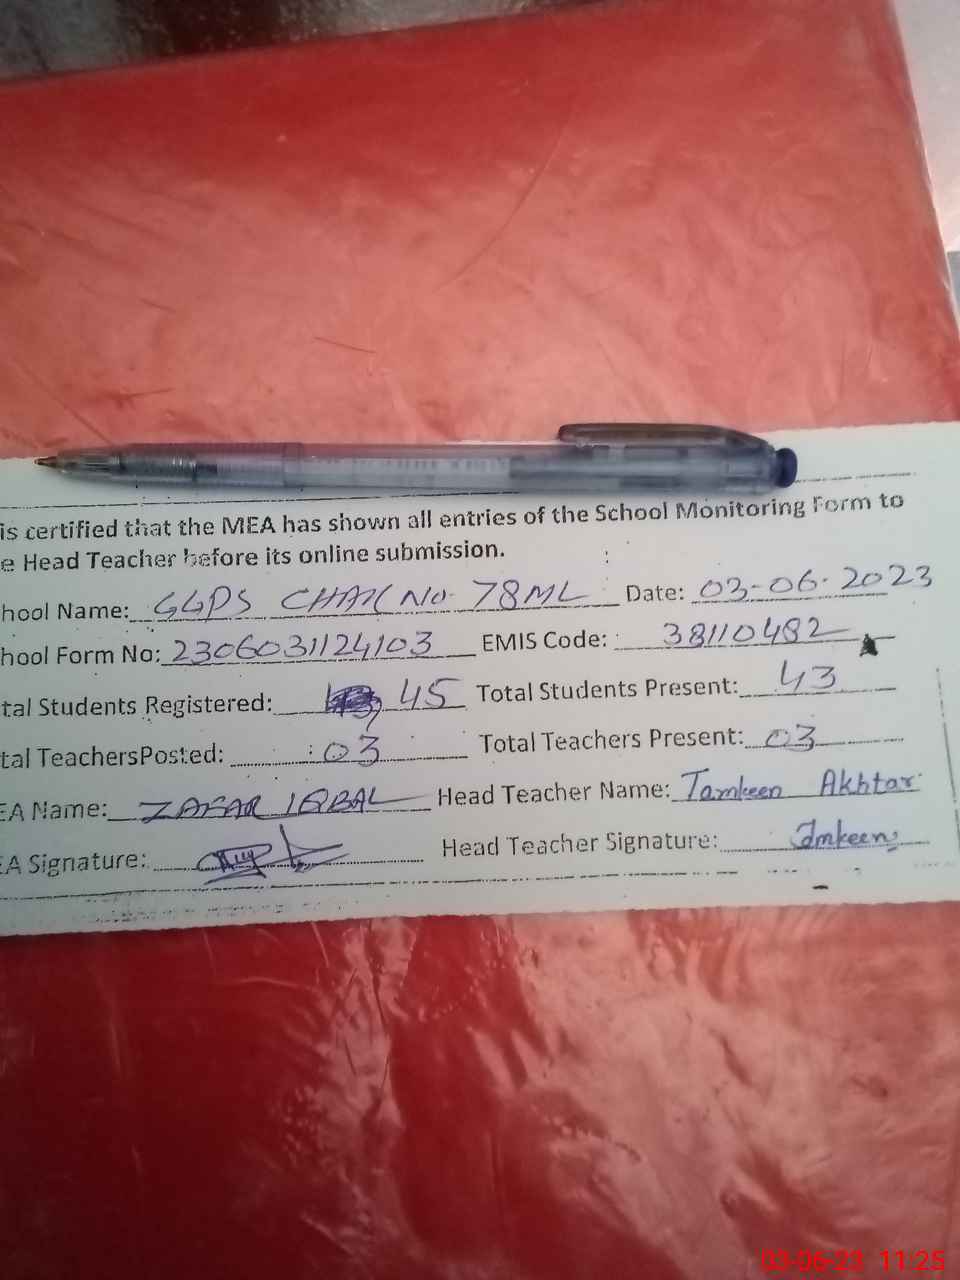 is certified that the MEA has shown all entries of the School Monitoring Form to
e Head Teacher before its online submission.
hool Name: GGPS CHAK NO. 78ML Date: 03-06-2023
hool Form No: 2306031124103 EMIS Code: 38110482
tal Students Registered: 45 Total Students Present: 43
tal TeachersPosted: 03 Total Teachers Present: 03
EA Name: ZAFAR IQBAL Head Teacher Name: Tamkeen Akhtar
EA Signature: Head Teacher Signature: Tmkeen
03-06-23 11:25